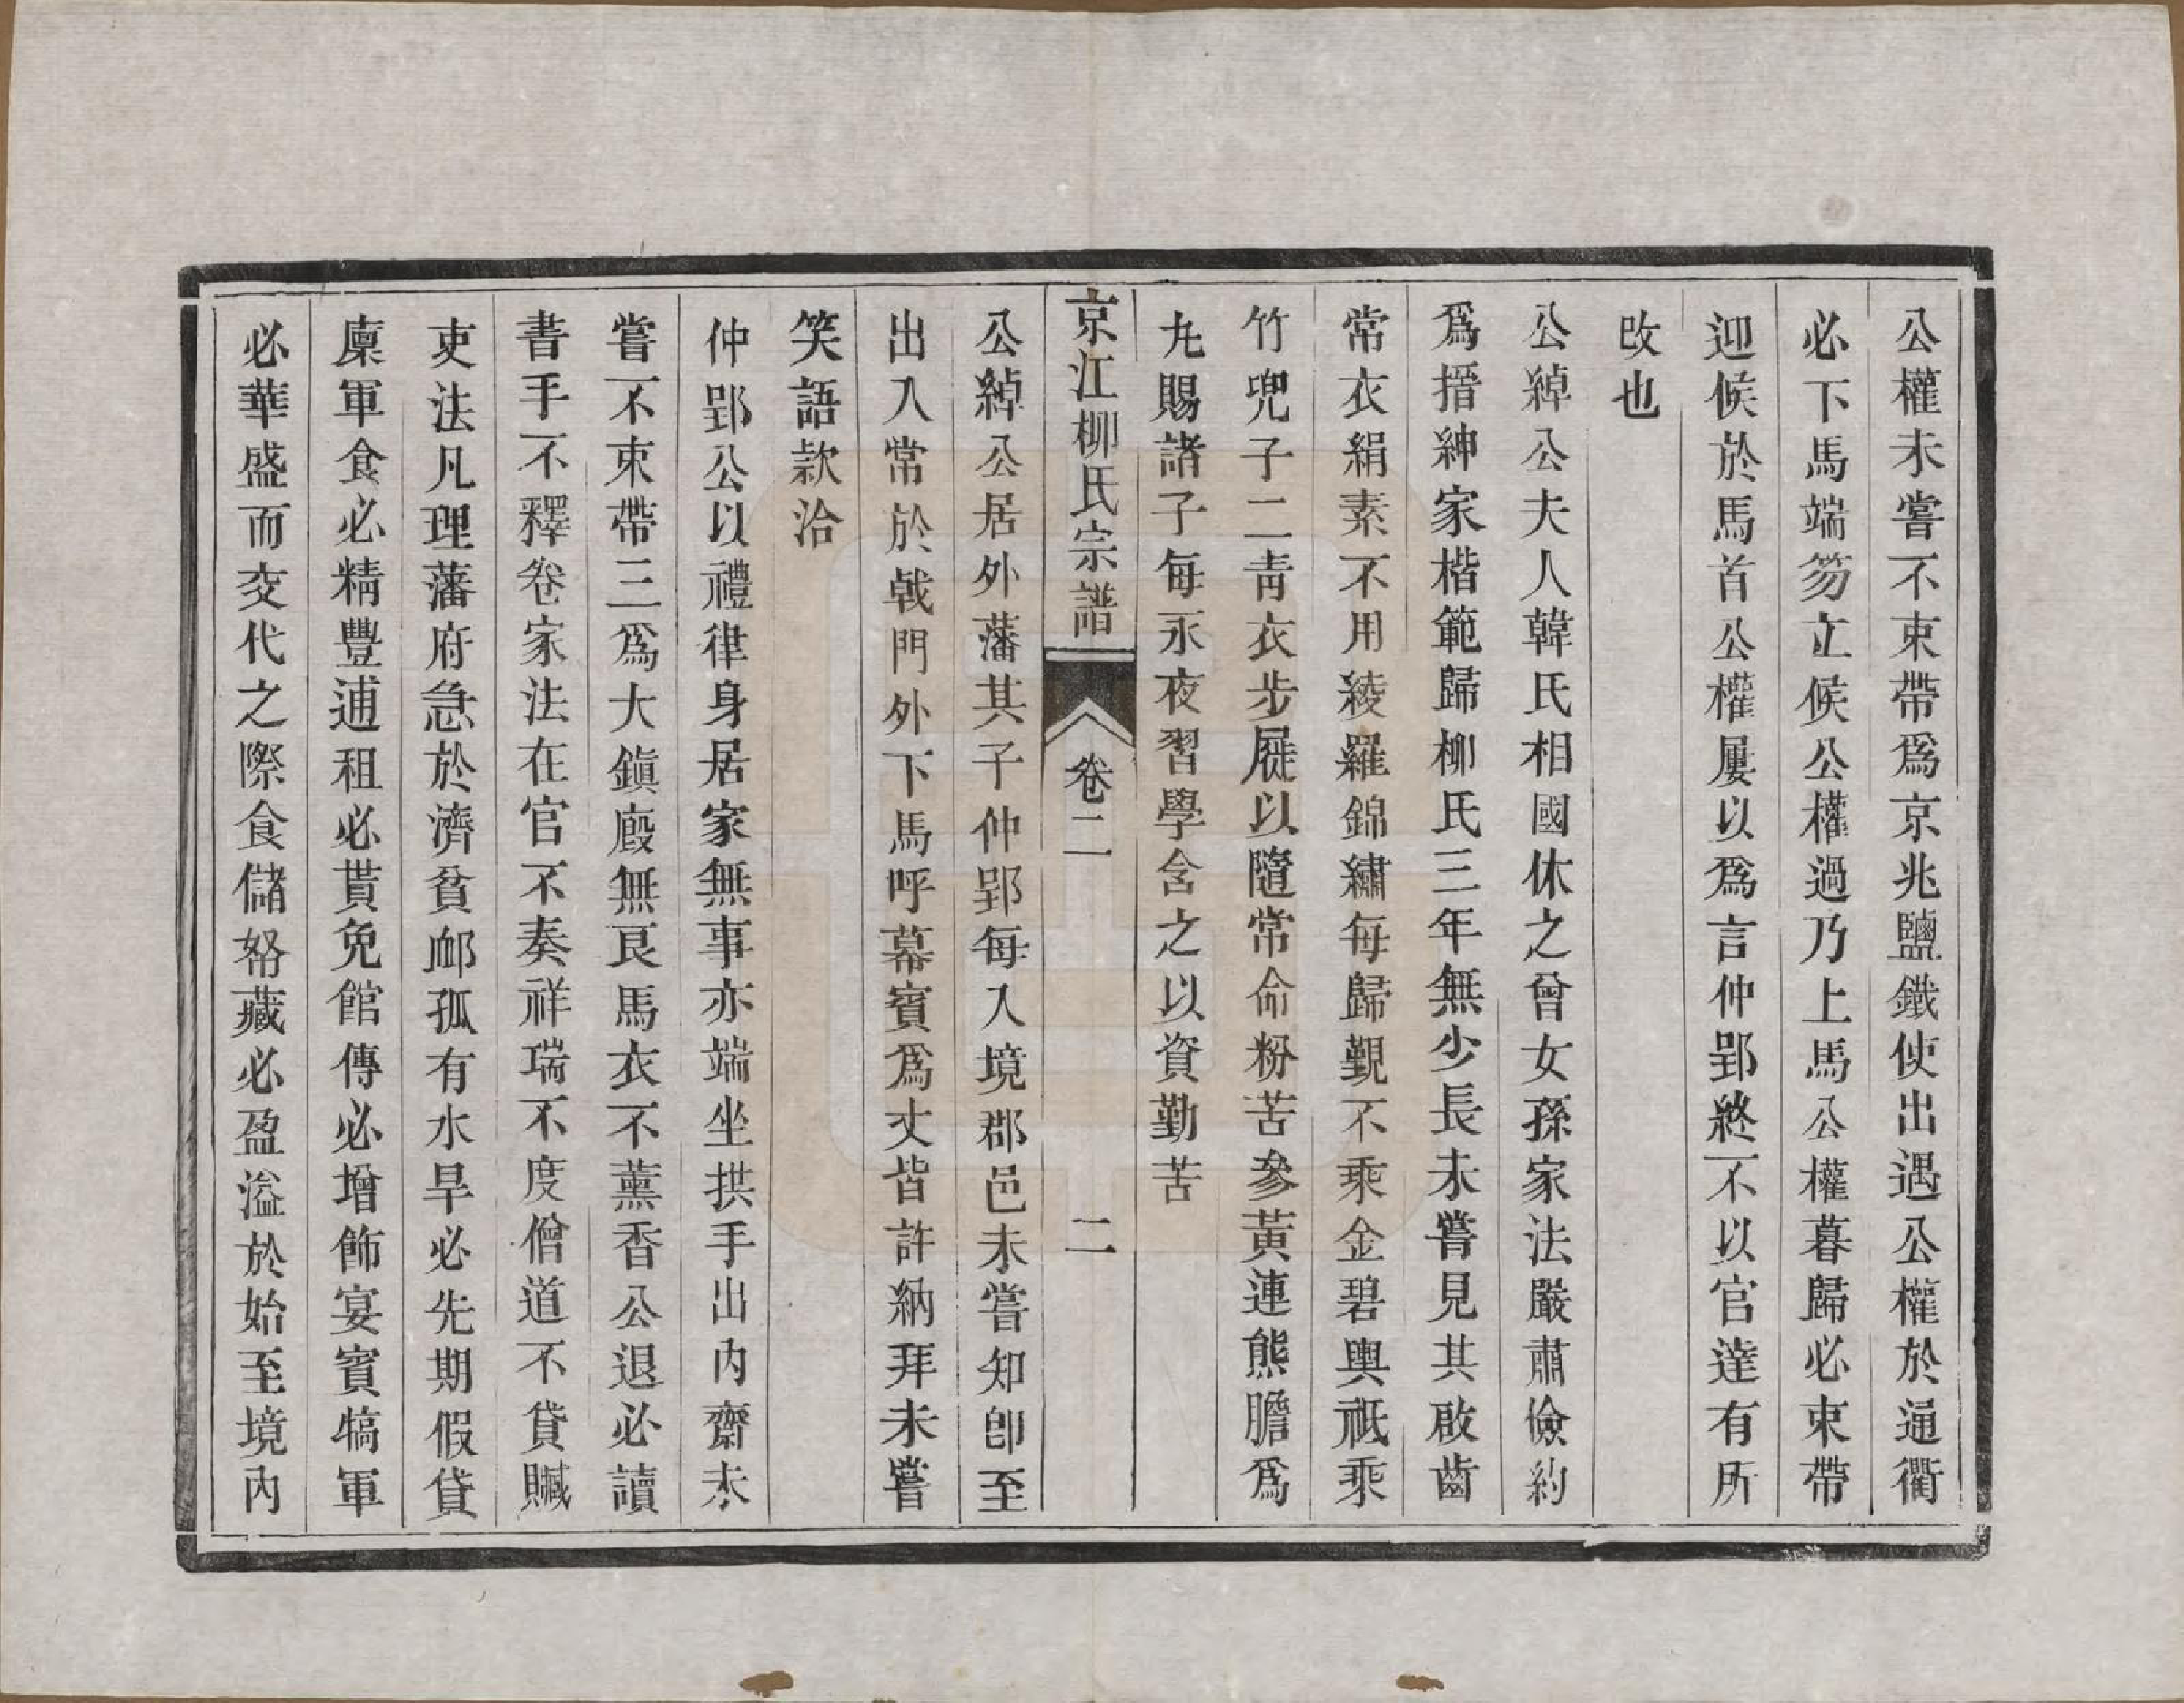 公權未嘗不束帶爲京兆鹽鐵使出遇公權於通衢
必下馬端笏立候公權過乃上馬公權暮歸必束帶
迎候於馬首公權屢以爲言仲郢終不以官達有所
改也
公綽公夫人韓氏相國休之曾女孫家法嚴肅儉約
爲搢紳家楷範歸柳氏三年無少長未嘗見其啟齒
常衣絹素不用綾羅錦繡每歸覲不乘金碧輿祇乘
竹兜子二青衣步屣以隨常命粉苦參黃連熊膽爲
丸賜諸子每永夜習學含之以資勤苦
京江柳氏宗譜 卷二 二
公綽公居外藩其子仲郢每入境郡邑未嘗知卽至
出入常於戟門外下馬呼幕賓爲丈皆許納拜未嘗
笑語款洽
仲郢公以禮律身居家無事亦端坐拱手出內齋未
嘗不束帶三爲大鎭廄無良馬衣不薰香公退必讀
書手不釋卷家法在官不奏祥瑞不度僧道不貸贓
吏法凡理藩府急於濟貧卹孤有水旱必先期假貸
廩軍食必精豐逋租必貰免館傳必增飾宴賓犒軍
必華盛而交代之際食儲帑藏必盈溢於始至境內